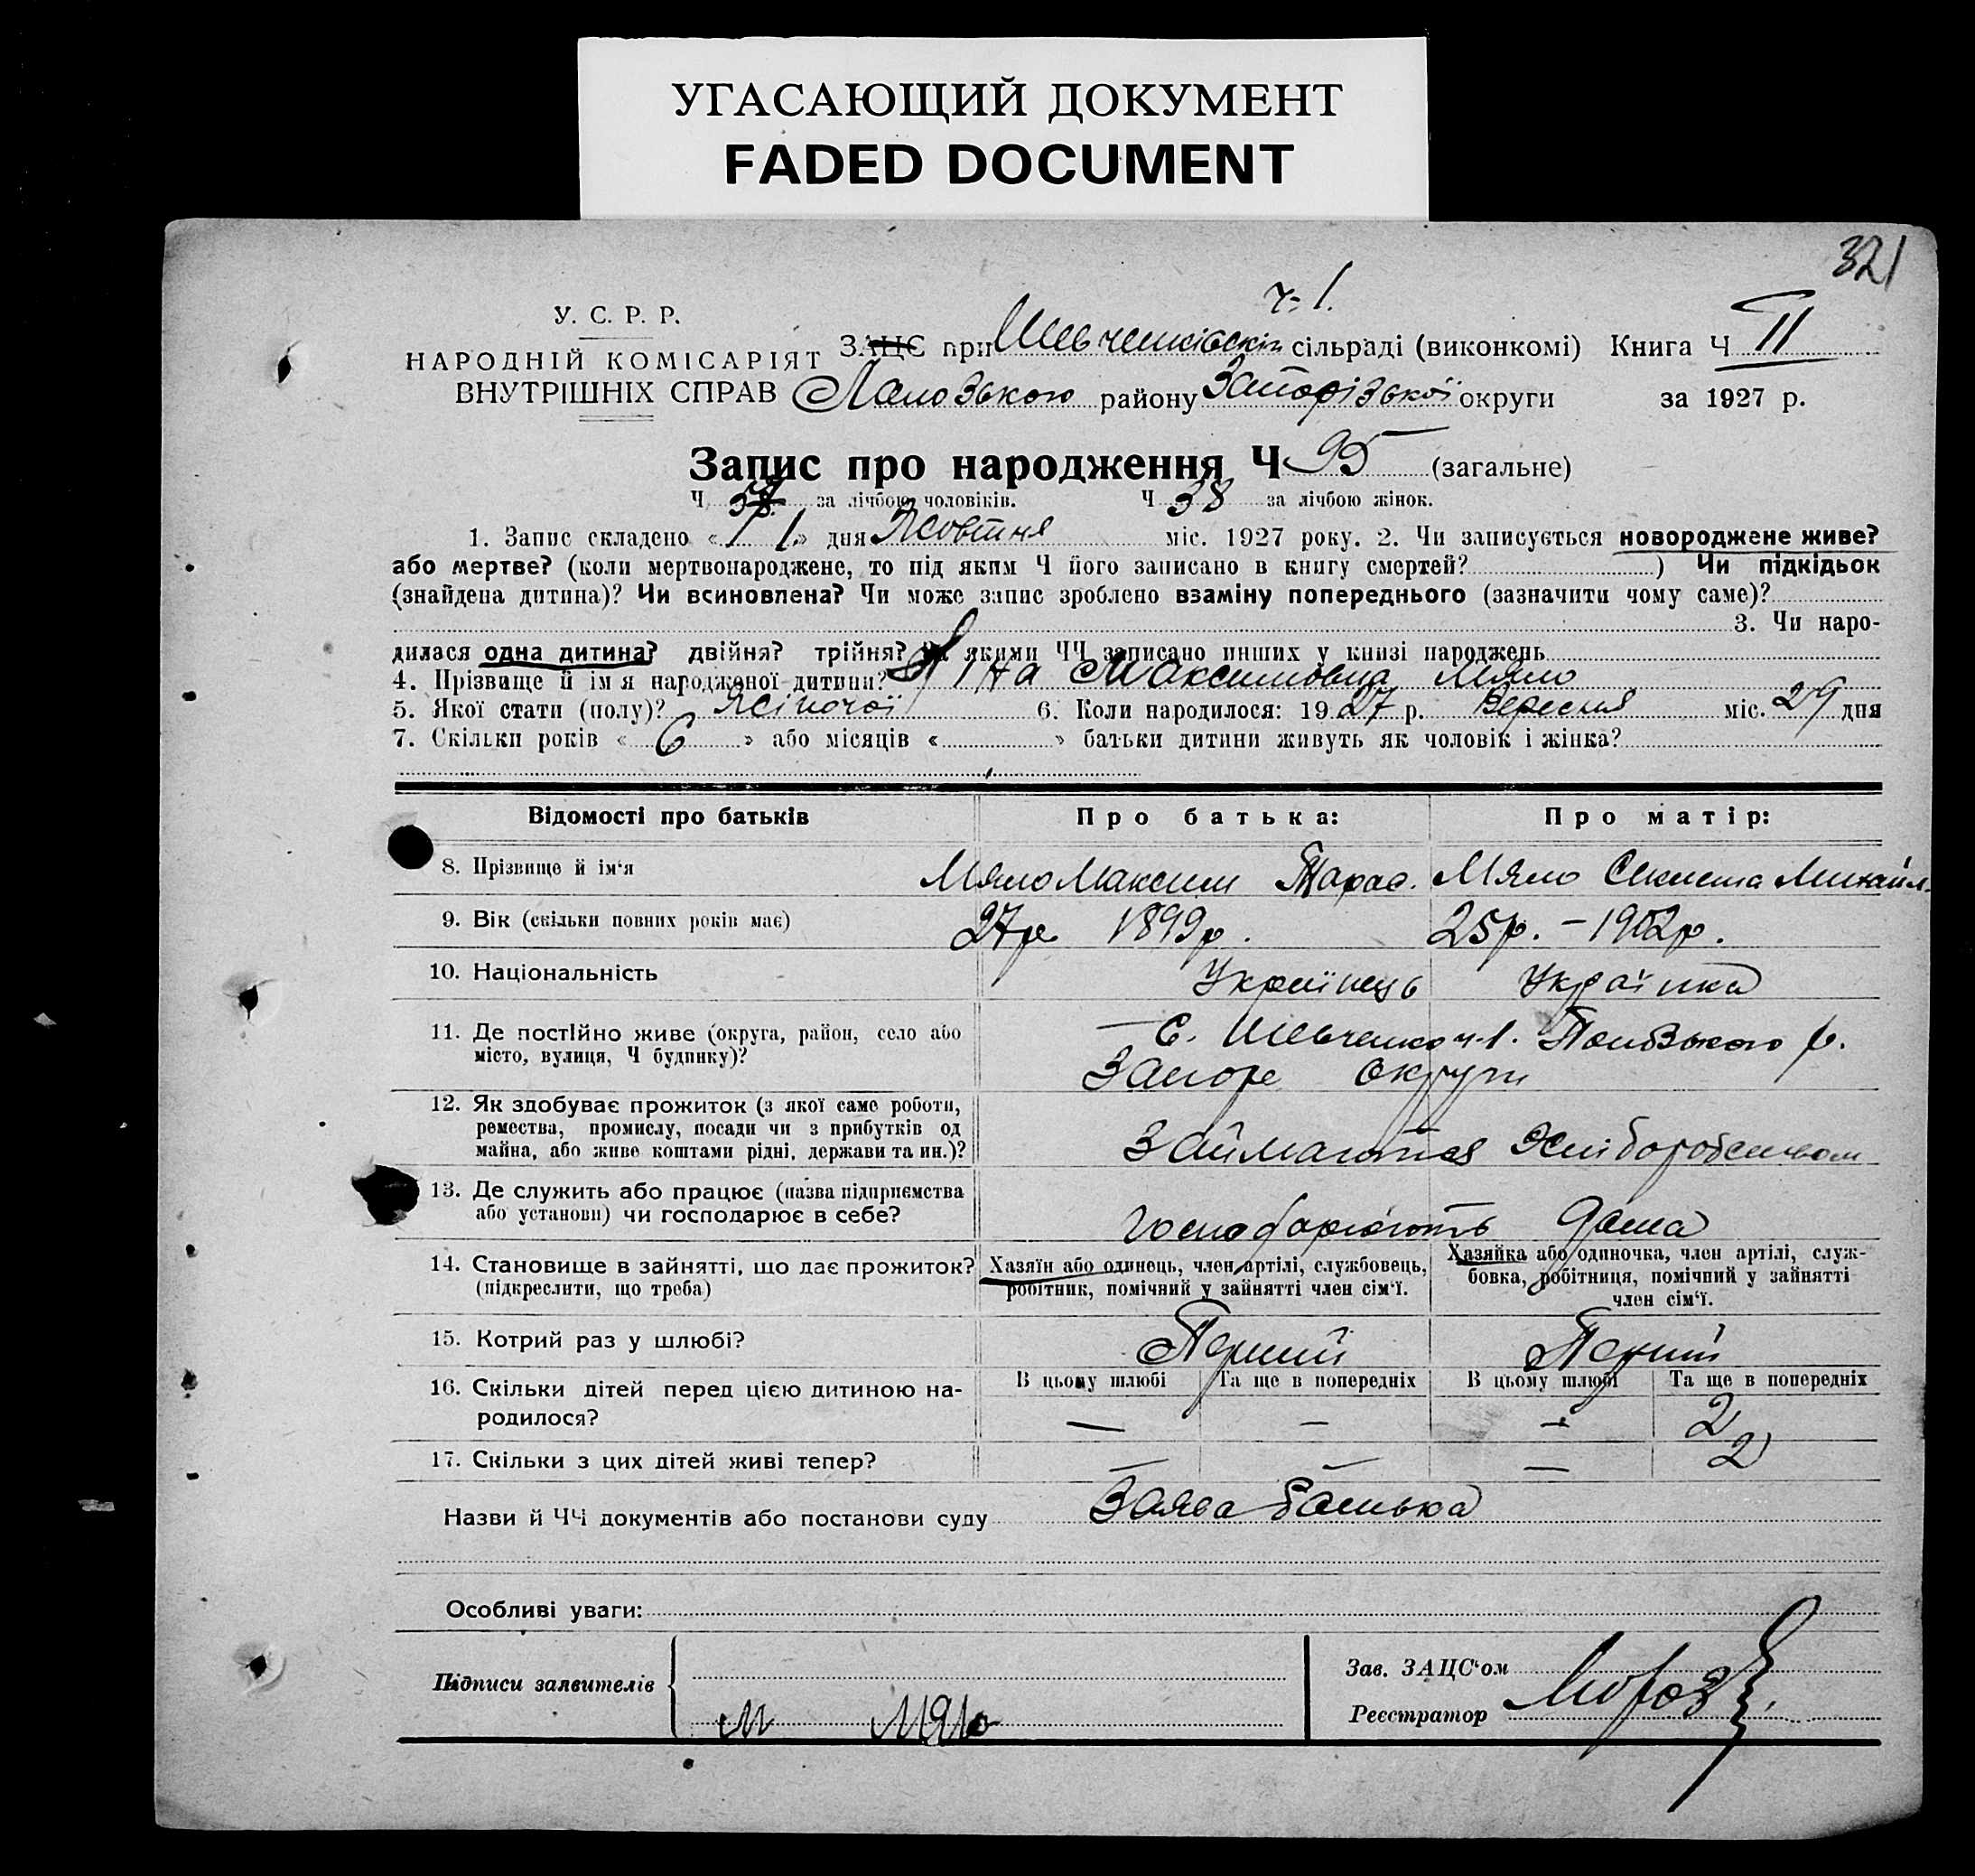 УГАСАЮЩИЙ ДОКУМЕНТ
FADED DOCUMENT
321
У. С. Р. Р.
НАРОДНІЙ КОМІСАРІЯТ
ВНУТРІШНІХ СПРАВ
ч. 1.
ЗАЦС при Шевченківскій сільраді (виконкомі) Книга Ч II
району Запорізької округи за 1927 р.
Запис про народження Ч 95 (загальне)
Ч за лічбою чоловіків. Ч 38 за лічбою жінок.
1. Запис складено « 1 » дня Жовтня міс. 1927 року. 2. Чи записується новороджене живе?
або мертве? (коли мертвонароджене, то під яким Ч його записано в книгу смертей? ) Чи підкідьок
(знайдена дитина)? Чи всиновлена? Чи може запис зроблено взаміну попереднього (зазначити чому саме)?
3. Чи наро-
дилася одна дитина? двійня? трійня? За якими ЧЧ записано инших у книзі народжень
4. Прізвище й ім'я народженої дитини? Максимовна Мяло
5. Якої стати (полу)? Жіночої 6. Коли народилося: 1927 р. Вересня міс. 29 дня
7. Скільки років « 6 » або місяців « » батьки дитини живуть як чоловік і жінка?
Відомості про батьків Про батька: Про матір:
8. Прізвище й ім'я Мяло Максим Тарас. Мяло Михайл.
9. Вік (скільки повних років має) 27р 1899р. 25р. – 1902р.
10. Національність Українець Українка
11. Де постійно живе (округа, район, село або
місто, вулиця, Ч будинку)?
С. Шевченко ч. 1. р.
Запоре Округи
12. Як здобуває прожиток (з якої саме роботи,
ремества, промислу, посади чи з прибутків од
майна, або живе коштами рідні, держави та ин.)?
Займаются Хліборобством
13. Де служить або працює (назва підприємства
або установи) чи господарює в себе?
Господарюють дома
14. Становище в зайнятті, що дає прожиток?
(підкреслити, що треба)
Хазяїн або одинець, член артілі, службовець,
робітник, помічний у зайнятті член сім'ї.
Хазяйка або одиночка, член артілі, служ-
бовка, робітниця, помічний у зайнятті
член сім'ї.
15. Котрий раз у шлюбі? Перший Перший
16. Скільки дітей перед цією дитиною на-
родилося?
В цьому шлюбі Та ще в попередніх В цьому шлюбі Та ще в попередніх
— — — 2
17. Скільки з цих дітей живі тепер? — — — 2
Назви й ЧЧ документів або постанови суду Заява батька
Особливі уваги:
Підписи заявителів
М Мяло
Зав. ЗАЦС'ом
Реєстратор Мороз